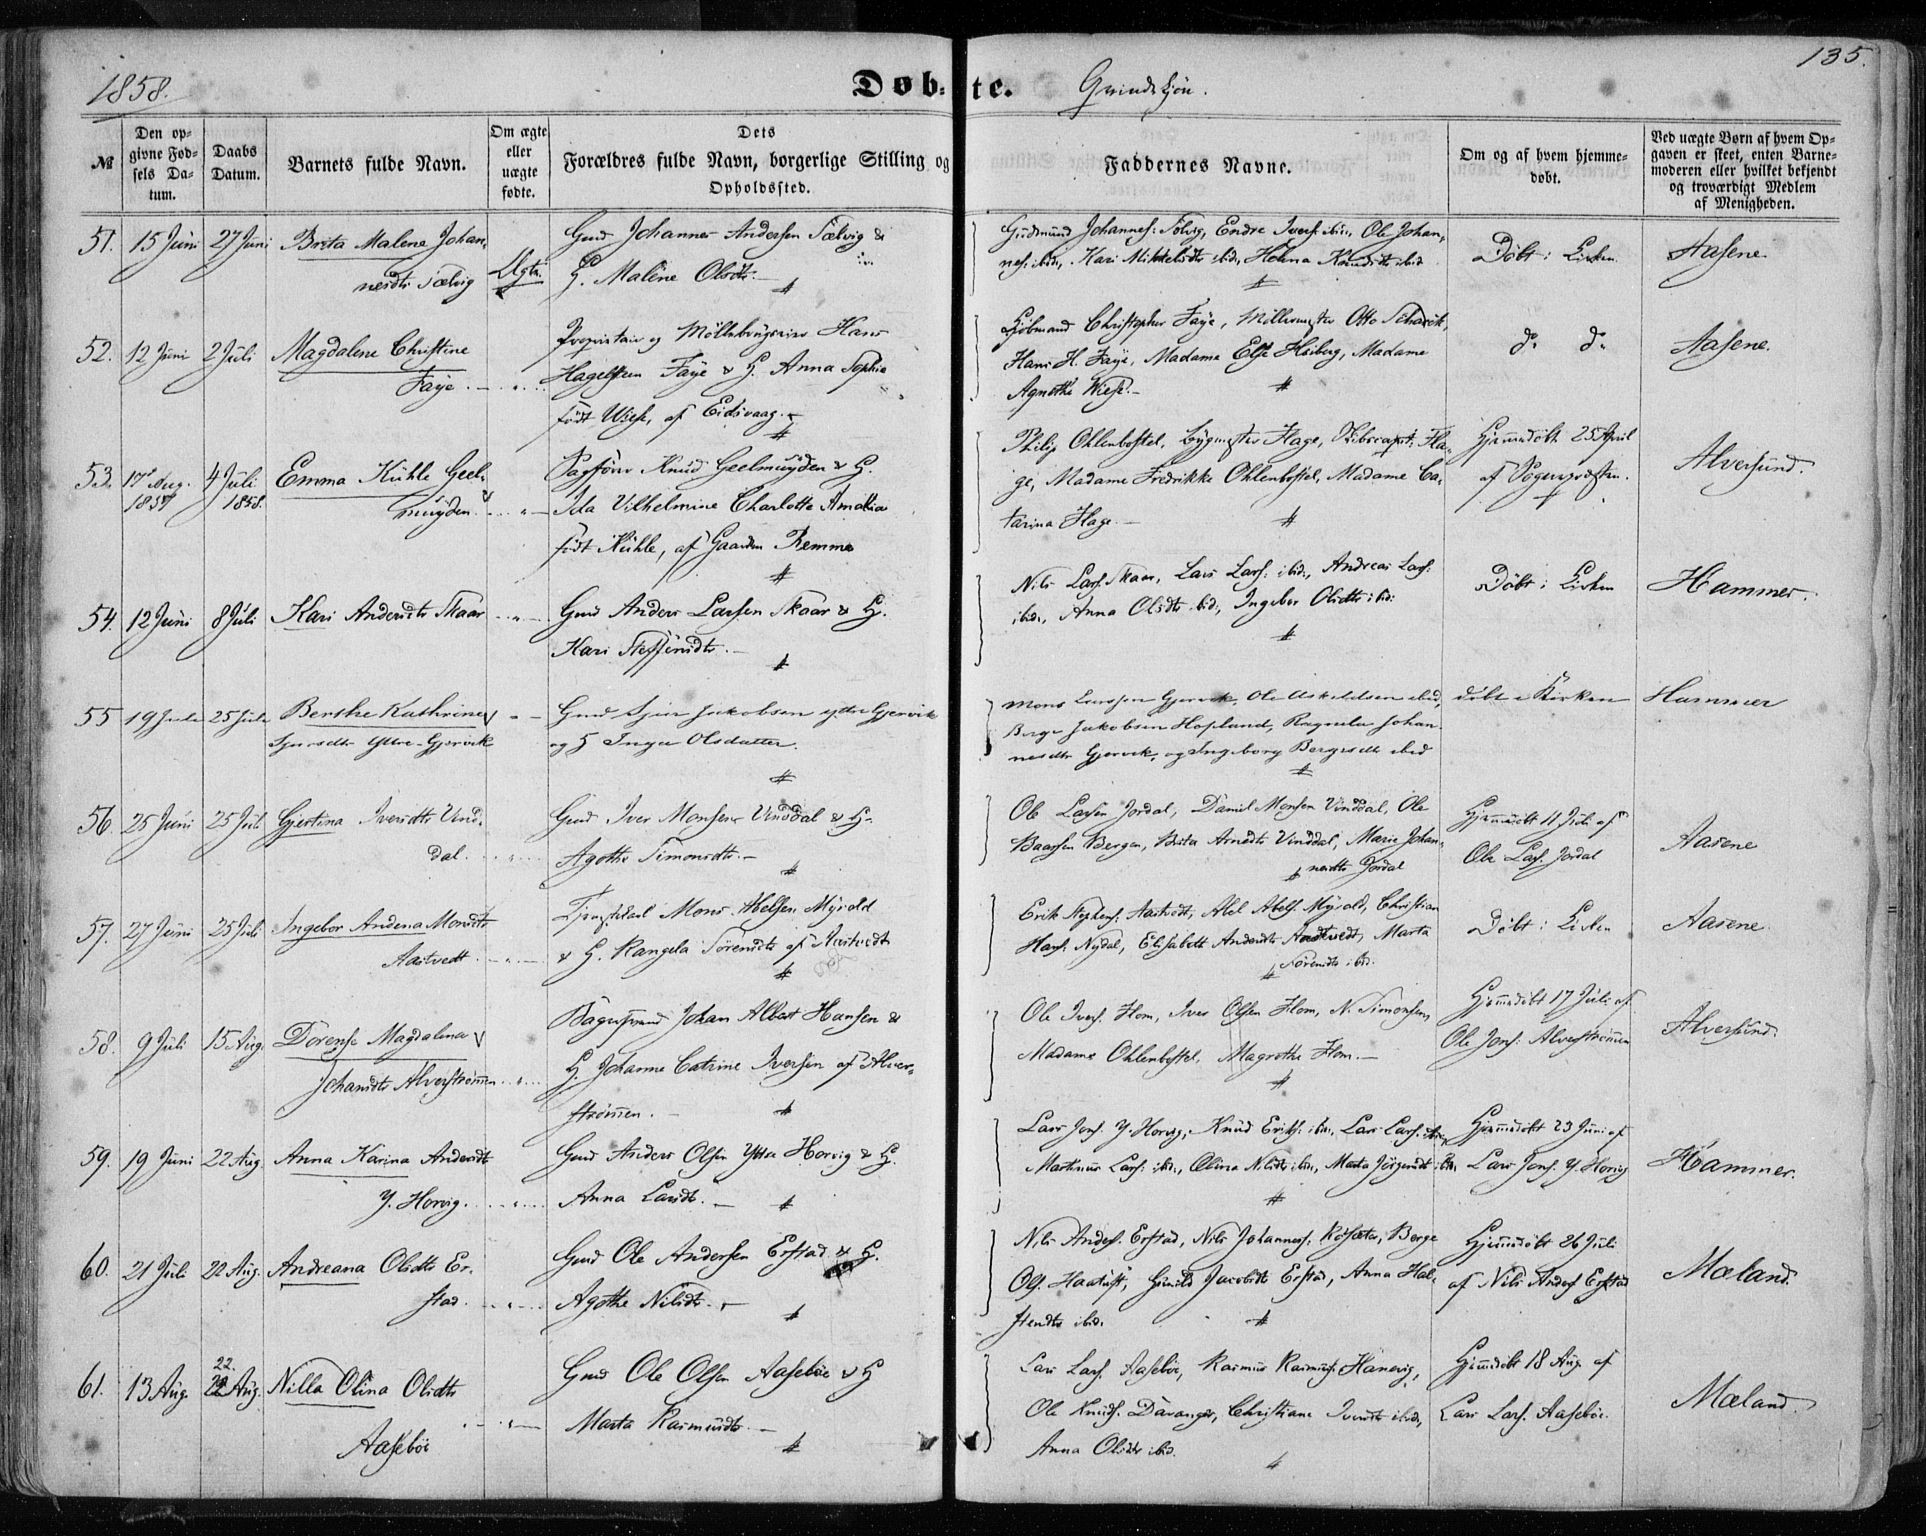 1858.
Døb-te.
Qvindekjøn.
135.
№
Den op-
givne Fød-
sels Da-
tum.
Daabs
Datum.
Barnets fulde Navn.
Om ægte
eller
uægte
fødte.
Dets
Forældres fulde Navn, borgerlige Stilling og
Opholdssted.
Faddernes Navne.
Om og af hvem hjemme-
døbt.
Ved uægte Børn af hvem Op-
gaven er skeet, enten Barne-
moderen eller hvilket bekjendt
og troværdigt Medlem
af Menigheden.
51. 15 Juni 27 Juni Brita Malene Johan-
nesdtr Sælvig
Ægte.
Gmd Johannes Andersen Sælvig &
H. Malene Olsdtr.
Gudmund Johannes: Solvig, Endre Ivers: ibid., Ole Johan-
nes: ibid., Kari Mikkelsdtr ibid, Helena Knudsdtr ibid
Døbt i Kirken
Aasene
52. 12 Juni 2 Juli Magdalene Christine
Faye.
Proprietair og Møllebrugseier Hans
Hagelsteen Faye & H. Anna Sophie
født Wiese, af Eidsvaag.
Kjøbmand Christopher Faye, Møllermester Otto
Hans H. Faye, Madame Else Heiberg, Madame
Agnethe Wiese.
do do
Aasene.
53. 17de Aug. 1857 4 Juli 1858. Emma Kühle Geel-
muyden.
Sagfører Knud Geelmuyden & H.
Ida Vilhelmine Charlotte Amalia
født Kühle, af Gaarden Remme
Philip Ohlenbostel, Bygmester Hage, Fla-
ge, Madame Fredrikke Ohlenbostel, Madame Ca-
tarina Hage.
Hjemmedøbt 25 April
af Sognepræsten.
Alversund.
54. 12 Juni 8 Juli Kari Andersdtr Skaar
Gmd Anders Larsen Skaar & H.
Kari Steffensdtr.
Nils Lars. Skaar, Lars Lars: ibid., Andreas Lars:
ibid., Anna Olsdtr ibid, Ingebor Olsdtr ibid:
Døbt i Kirken
Hammer.
55 19 Juli 25 Juli Berthe Kathrine
Sjursdtr Yttre-Gjervik
Gmd Sjur Jakobsen yttre Gjervik
og H Inga Olsdatter.
Mons Larssen Gjervik, Ole Askeldsen ibid,
Berge Jakobsen Hopland, Ragnela Johan-
nesdtr Gjervik, og Ingeborg Bergesdtr ibid
døbt i Kirken
Hammer
56. 25 Juni 25 Juli Gjertina Iversdtr Vind-
dal.
Gmd Iver Monsen Vinddal & H.
Agathe Simonsdtr.
Ole Larsen Jordal, Daniel Monsen Vinddal, Ole
Baarsen Bergen, Brita Arnedtr Vinddal, Marie Johan-
nesdtr Jordal
Hjemmedøbt 11 Juli af
Ole Lars. Jordal
Aasene
57. 27 Juni 25 Juli Ingebor Andena Monsdtr
Aastvedt.
Tjenestekarl Mons Abelsen Myrdal
& H. Rangela Sørensdtr af Aastvedt
Erik Stephens: Aastvedt, Abel Abels. Myrdal, Christian
Hans: Nydal, Elisabeth Andersdtr Aastvedt, Marta
Sørensdtr ibid.
Døbt i Kirken
Aasene.
58. 9 Juli 15 Aug. Dorense Magdalena
Johansdtr Alverstrømmen
Bagersvend Johan Albert Hansen &
H. Johanne Catrine Iversen af Alver-
strømmen.
Ole Ivers. Flom, Iver Olsen Flom, N. Simonsen,
Madame Ohlenbostel, Magrethe Flom.
Hjemmedøbt 17 Juli af
Ole Jons: Alverstrømmen
Alversund.
59. 19 Juni 22 Aug. Anna Karina Andersdtr
Y. Horvig.
Gmd Anders Olsen Yttre Horvig & H.
Anna Larsdtr.
Lars Jons. Y. Horvig, Knud Eriks: ibid., Lars Lars. ibid,
Martinus Lars: ibid., Olina Nilsdtr ibid., Marta Jörgensdtr ibid.
Hjemmedøbt 23 Juni af
Lars Jons. Y. Horvig
Hammer.
60. 21 Juli 22 Aug. Andreana Olsdtr Er-
stad.
Gmd Ole Andersen Erstad & H.
Agathe Nilsdtr.
Nils Anders. Erstad, Nils Johannes. Röisæter, Berge
Ols. Haatuft, Gunild Jacobsdtr Erstad, Anna Hal-
stendtr ibid.
Hjemmedøbt 26 Juli
af Nils Anders Erstad
Mæland.
61. 13 Aug. 22. Aug. Nilla Olina Olsdtr
Aasebøe
Gmd Ole Olsen Aasebøe & H
Marta Rasmusdtr.
Lars Lars. Aasebøe, Rasmus Rasmus: Hanevig,
Ole Knuds. Davanger, Christiane Iversdtr ibid.,
Anna Olsdtr ibid.
Hjemmedøbt 18 Aug. af
Lars Lars. Aasebøe.
Mæland.